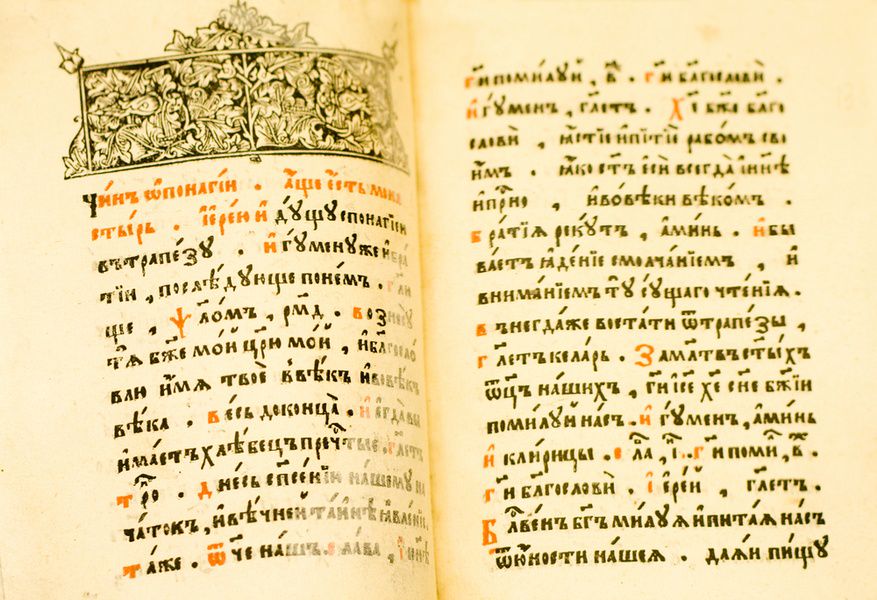 Чи́нъ ѡ҆ понагі́и . а҆́ще є҆́сть мона
сты́рь . і҆ере́ю и҆ дꙋ́щꙋ с понагі́еи
въ трапе́зꙋ . и҆гꙋ́менꙋ же и҆ бра́
тїи , послѣ́дꙋюще по не́мъ . гл҃и
ще , ѱ҃ло́мъ , рм҃д . вознесꙋ́
тѧ̀ бж҃е мо́и цр҃ю мо́и , и҆ бл҃госло
влю̀ и҆́мѧ твоѐ в вѣ́къ и҆ во вѣ́къ
вѣ́ка . ве́сь до конца̀ . и҆ є҆гда̀ вы
и҆́мастъ хлѣ́бецъ пречⷭ҇тые . гл҃етъ
тро . дне́сь сп҃се́нїи на́шемꙋ на
ча́токъ , и҆ вѣ́чнеи та́инѣ ꙗ҆вле́нїи .
та́же . ѿче на́шъ . сла́ва , и҆ ны́нѣ
гⷭ҇и поми́лꙋи , в҃ . гⷭ҇и бл҃гослови̂ .
и҆гꙋ́менъ , гл҃етъ . хе҃ бж҃е бл҃го
слови̂ , ꙗ҆́стїе и҆ пи́тїе рабо́мъ сво
и҆́мъ . ꙗ҆́ко ст҃ъ є҆сѝ всегда̀ и҆ нн҃ѣ
и҆ при́но , и҆ во вѣ́ки вѣ́ком .
бра́тїѧ рекꙋ́тъ , а҆ми́нь . и҆ бы
ва́етъ ꙗ҆де́нїе с молча́нїемъ , и҆
внима́нїемъ тꙋ̀ сꙋ́щаго чте́нїѧ .
внегда́ же воста́ти ѿ трапе́зы ,
гл҃етъ ке́ларь . За мл҃твъ ст҃ы́хъ
ѿц҃ъ на́шихъ , гⷭ҇и і҆се҃ хе҃ сн҃е бж҃їи
поми́лꙋи на́съ . и҆гꙋ́менъ , а҆ми́нь
и҆ кли́рицы . сла , і҆ . гⷭ҇и поми , в҃ .
гⷭ҇и бл҃гослови̂ . і҆ере́и , гл҃етъ .
Бл҃ве́нъ бг҃ъ ми́лꙋѧ и҆ пита́ѧ на́съ
ѿ ю҆́ности на́шеѧ . даѧ́и пи́щꙋ